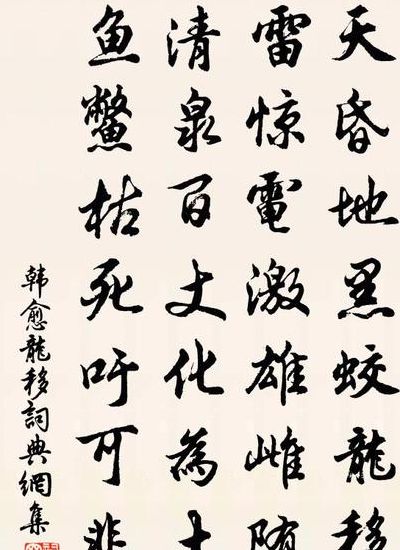 天昏地黑蛟龍移
雷惊電激雄雌随
清泉百丈化為土
鱼鱉枯死吁可悲
韩愈龍移詞典網集